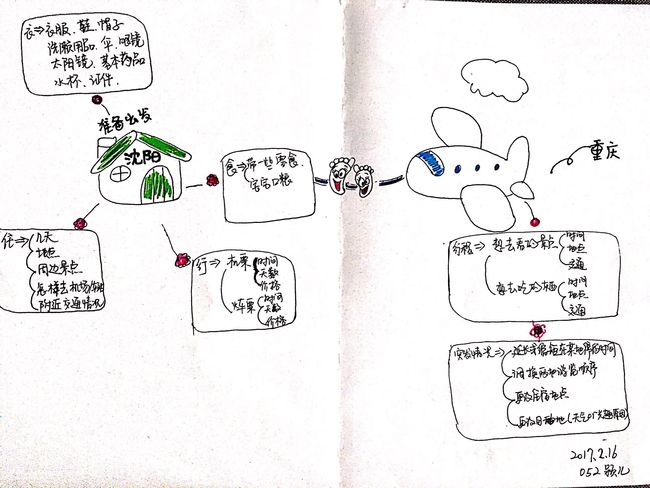 衣⇒衣服、鞋、帽子
洗漱用品、伞、眼镜
太阳镜、基本药品
水杯、证件.
准备出发
沈阳
食⇒带一些零食、
宝宝口粮
重庆
住⇒
几天
地点
周边景点
怎样去机场
附近交通情况
行⇒
机票
时间
天数
价格
火车票
时间
天数
价格
行程⇒
想去看的景点
时间
地点
交通
要去吃的
时间
地点
交通
突发情况⇒
延长或缩短在某地停留时间
调换两地游览顺序
更改住宿地点
更改目的地(天气or
2017.2.16
052